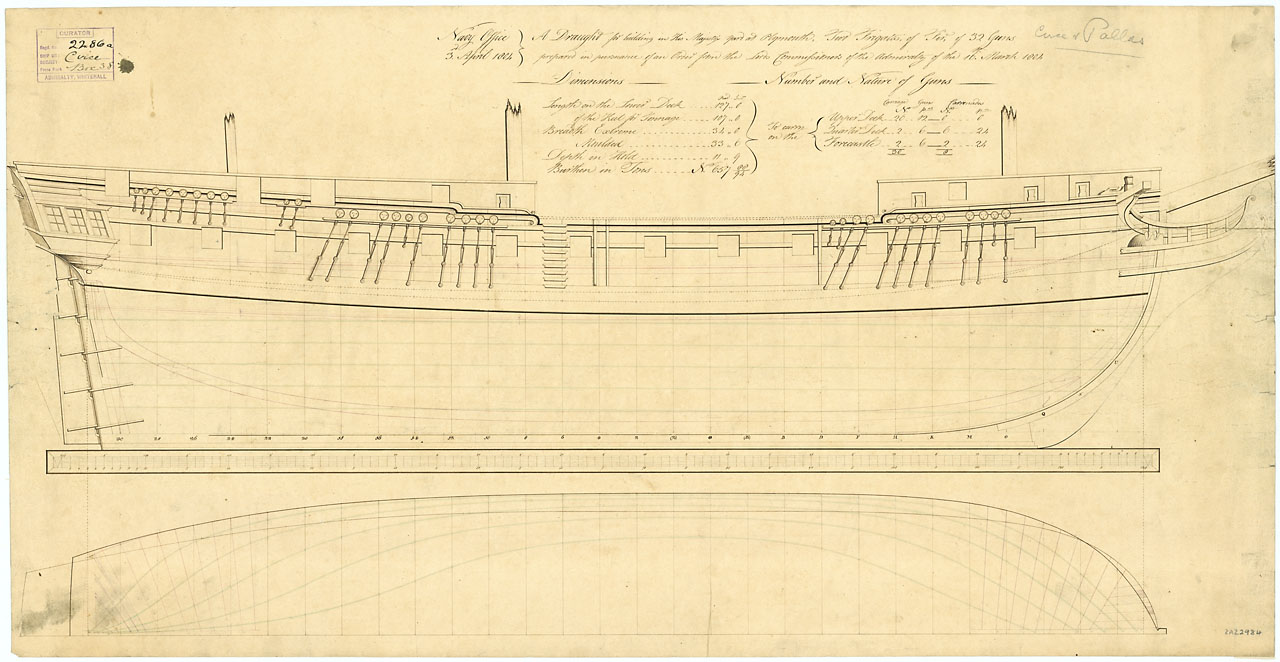 CURATOR
Regd. No. 2286a
Circe
Box 38
ADMIRALTY, WHITEHALL
Navy Office
3 April 1804
A Draught for building in His Majesty's Yard at Plymouth, Two Frigates of Fir, of 32 Guns
prepared in pursuance of an Order from the Lords Commissioners of the Admiralty of the 16 March 1804
Circe & Pallas
Dimensions
Length on the Lower Deck 127 . 0
of the Keel for Tonnage 107 . 0
Breadth Extreme 34 . 0
Moulded 33 . 6
Depth in Hold 11 . 9
Burthen in Tons No 657
Number and Nature of Guns
To carry on the
Upper Deck 26 12 0 0
Quarter Deck 2 6 6 24
Forecastle 2 6 2 24
30 8
ZAZ2984